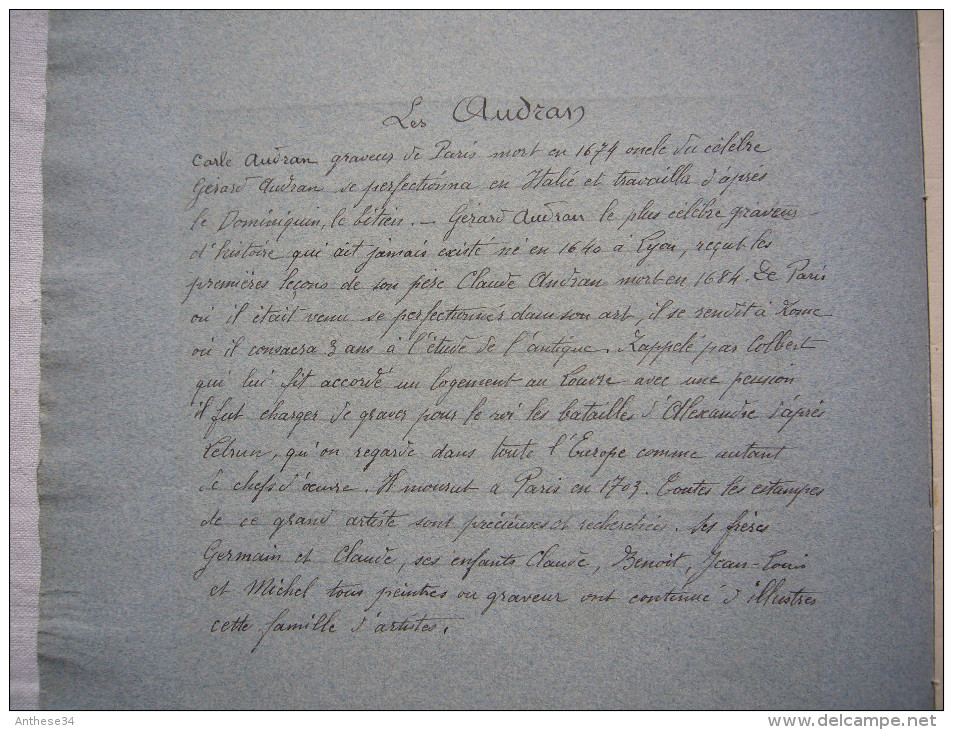 Les Audran
Carle Audran graveur de Paris mort en 1674 oncle du célèbre
Gérard Audran se perfectionna en Italie et travailla d'après
le Dominiquin, le Titien. — Gérard Audran le plus célèbre graveur
d'histoire qui ait jamais existé né en 1640 à Lyon, reçut les
premières leçons de son père Claude Audran mort en 1684. De Paris
où il était venu se perfectionner dans son art, il se rendit à Rome
où il consacra 3 ans à l'étude de l'antique. Rappelé par Colbert
qui lui fit accordé un logement au Louvre avec une pension
il fut charger de graver pour le roi les batailles d'Alexandre d'après
Lebrun, qu'on regarde dans toute l'Europe comme autant
de chefs d'œuvre. Il mourut à Paris en 1703. Toutes les estampes
de ce grand artiste sont précieuses et recherchées. Ses frères
Germain et Claude, ses enfants Claude, Benoit, Jean-Louis
et Michel tous peintres ou graveur ont continué d'illustres
cette famille d'artistes.
Anthese34
www.delcampe.net